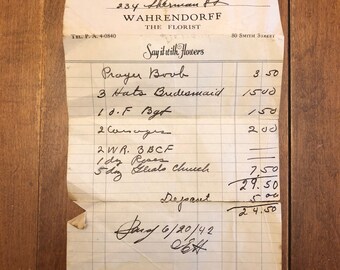 234 Sherman St
WAHRENDORFF
THE FLORIST
TEL. P. A. 4-0840 80 SMITH STREET
Say it with Flowers
Prayer Book 3 50
3 Hats Bridesmaid 15 00
1 Bqt 15 00
2 Corsages 2 00
2 W.R. 3BCF —
1 dz Roses —
5 dz Church 7.50
29.50
Deposit 5 00
24.50
Paid 6/20/42